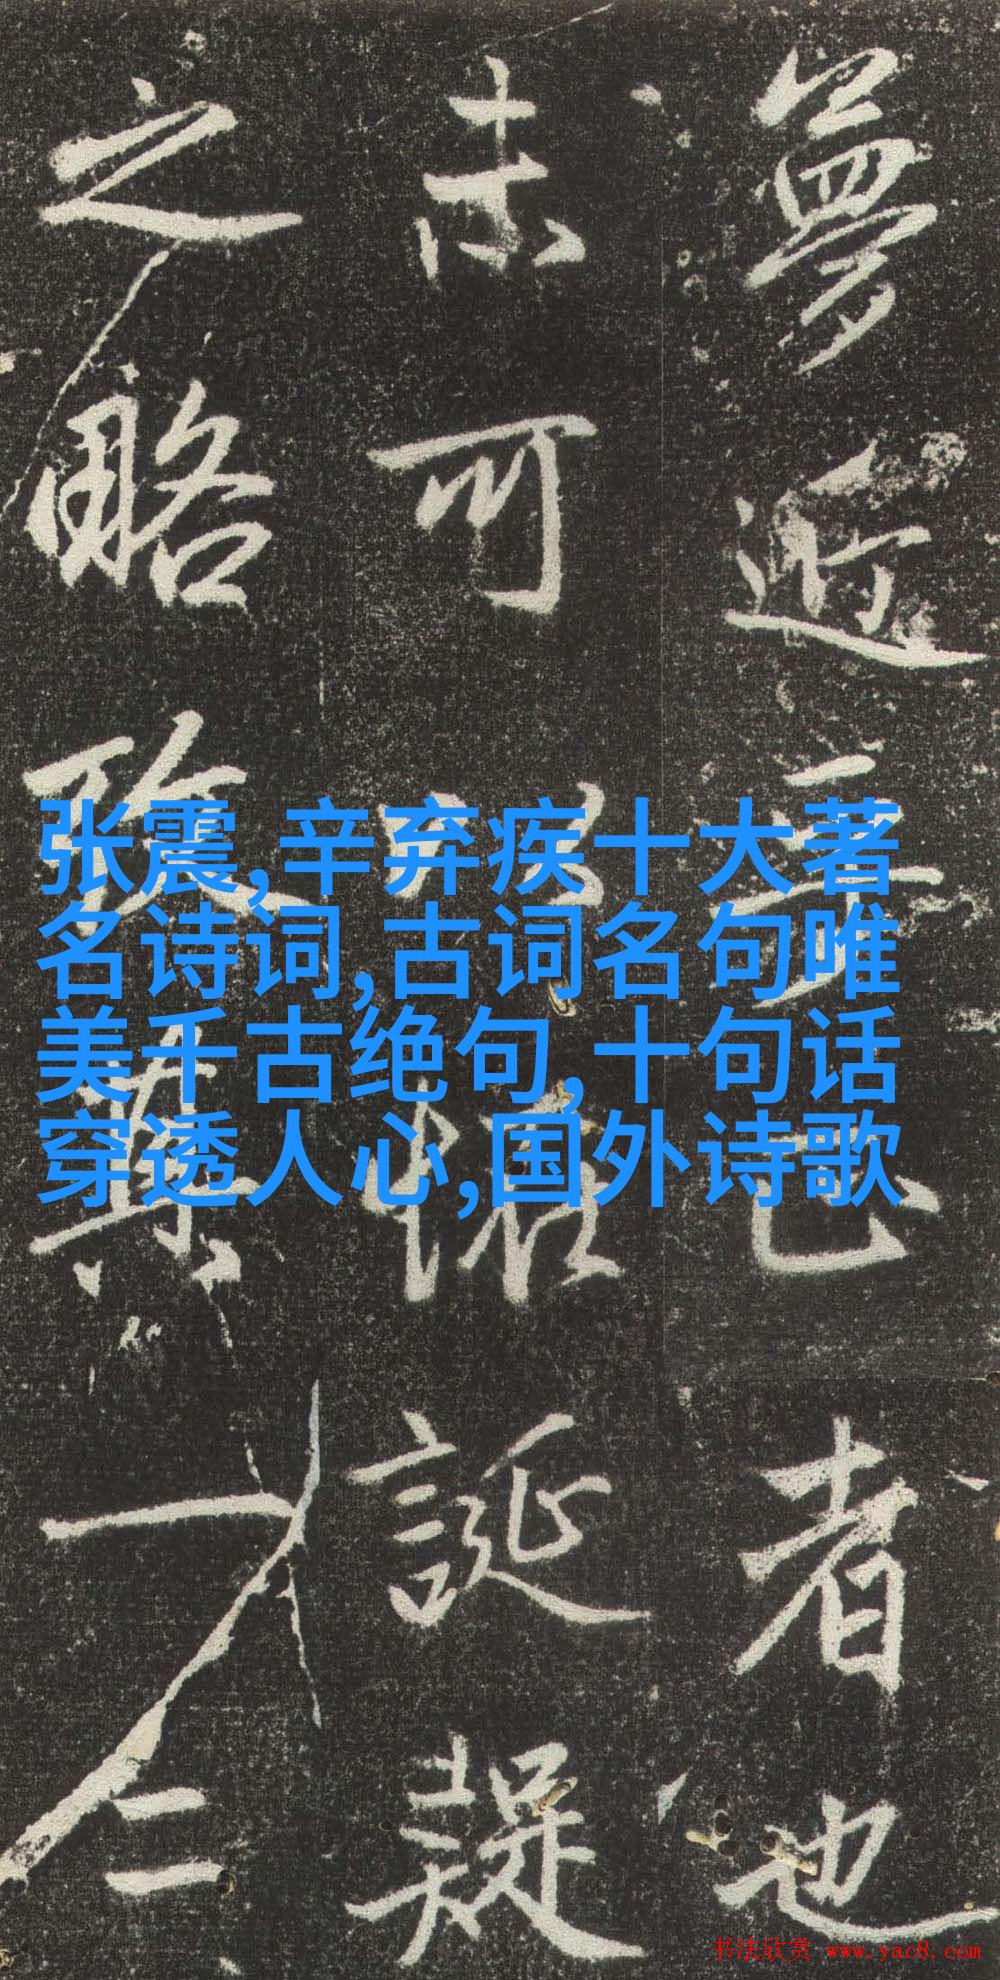 夢近者也
未可以怪誕疑
之略致其一二
张震,辛弃疾十大著
名诗词,古词名句唯
美千古绝句,十句话
穿透人心,国外诗歌
书法欣赏 www.yac8.com